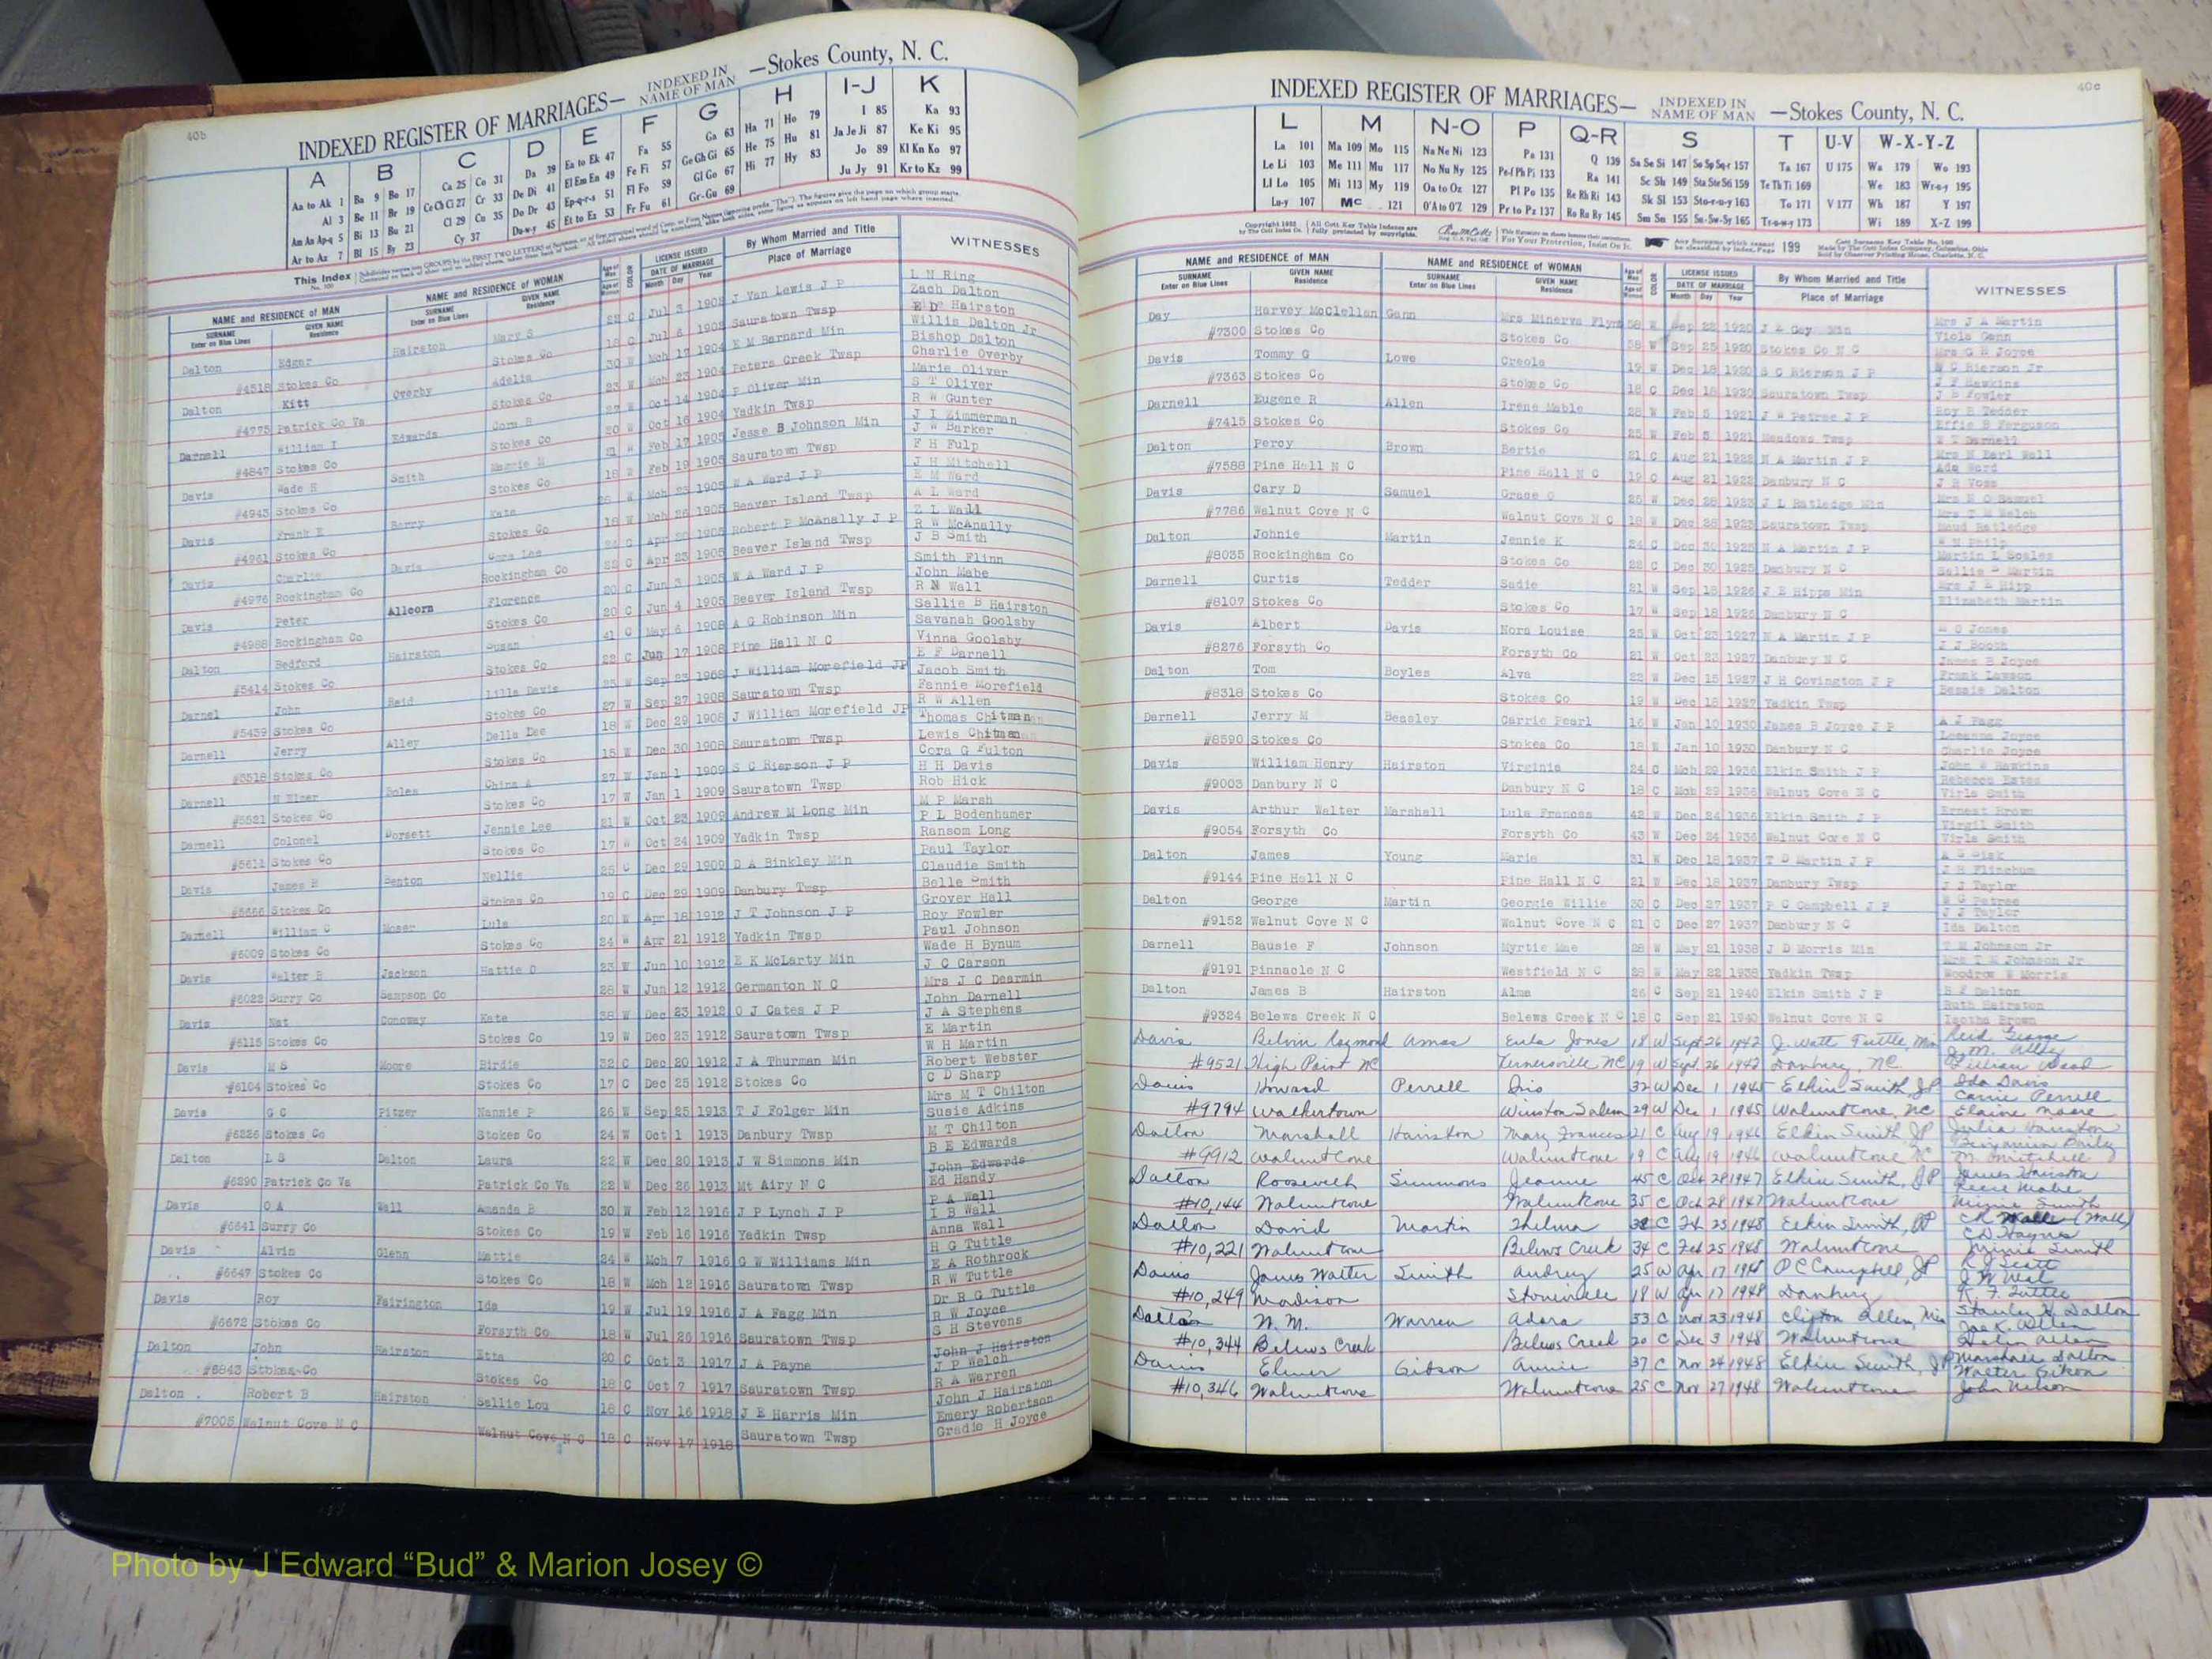 40b
INDEXED REGISTER OF MARRIAGES— INDEXED IN NAME OF MAN —Stokes County, N. C.
A B C D E F G H I-J K
Aa to Ak 1 Ba 9 Bo 17 Ca 25 Co 31 Da 39 Ea to Ek 47 Fa 55 Ga 63 Ha 71 Ho 79 I 85 Ka 93
Al 3 Be 11 Br 19 Ce Ch Ci 27 Cr 33 De Di 41 El Em En 49 Fe Fi 57 Ge Gh Gi 65 He 75 Hu 81 Ja Je Ji 87 Ke Ki 95
Am An Ap-q 5 Bi 13 Bu 21 Cl 29 Cu 35 Do Dr 43 Ep-q-r-s 51 Fl Fo 59 Gl Go 67 Hi 77 Hy 83 Jo 89 Kl Kn Ko 97
Ar to Az 7 Bl 15 By 23 Cy 37 Du-w-y 45 Et to Ez 53 Fr Fu 61 Gr-Gu 69 Ju Jy 91 Kr to Kz 99
This Index
NAME and RESIDENCE OF MAN NAME and RESIDENCE OF WOMAN LICENSE ISSUED By Whom Married and Title WITNESSES
SURNAME GIVEN NAME SURNAME GIVEN NAME COLOR DATE OF MARRIAGE Place of Marriage
Enter on Blue Lines Residence Enter on Blue Lines Residence Month Day Year
Dalton Edgar Hairston Mary S 22 C Jul 3 1902 J Van Lewis J P L N Ring
Zach Dalton
#4518 Stokes Co Stokes Co 18 C Jul 6 1902 Sauratown Twsp Hairston
Dalton Kitt Overby Adelia 30 W Mch 17 1904 E M Barnard Min Willis Dalton Jr
Bishop Dalton
#4775 Patrick Co Va Stokes Co 23 W Mch 23 1904 Peters Creek Twsp Charlie Overby
Darnell William I Edwards Cora 27 W Oct 14 1904 P Oliver Min Marie Oliver
S T Oliver
#4847 Stokes Co Stokes Co 20 W Oct 16 1904 Yadkin Twsp R W Gunter
Davis Wade H Smith Maggie M 21 W Feb 17 1905 Jesse B Johnson Min J I Zimmerman
J W Barker
#4943 Stokes Co Stokes Co 18 W Feb 19 1905 Sauratown Twsp F H Fulp
Davis Frank E Berry Kate W Mch 23 1905 W A Ward J P J H Mitchell
E M Ward
#4961 Stokes Co Stokes Co 18 W Mch 26 1905 Beaver Island Twsp A L Ward
Davis Charlie Davis Cora Lee C Apr 20 1905 Robert P McAnally J P Z L Wall
R W McAnally
#4976 Rockingham Co Rockingham Co 22 C Apr 23 1905 Beaver Island Twsp J B Smith
Davis Peter Allcorn Florence 20 C Jun 3 1905 W A Ward J P Smith Flinn
John Mabe
#4988 Rockingham Co Stokes Co 20 C Jun 4 1905 Beaver Island Twsp R N Wall
Dalton Bedford Hairston Susan 41 C May 6 1908 A G Robinson Min Sallie B Hairston
Savanah Goolsby
#5414 Stokes Co Stokes Co 22 C Jun 17 1908 Pine Hall N C Vinna Goolsby
Darnel John Reid Lilla Davis 25 W Sep 23 1968 J William Morefield JP E F Darnell
Jacob Smith
#5439 Stokes Co Stokes Co 27 W Sep 27 1908 Sauratown Twsp Fannie Morefield
Darnell Jerry Alley Della Lee 18 W Dec 29 1908 J William Morefield JP R W Allen
Thomas Chitman
#5518 Stokes Co Stokes Co 15 W Dec 30 1908 Sauratown Twsp Lewis Chitman
Darnell N Elmer Boles China A 27 W Jan 1 1909 S C Rierson J P Cora G Fulton
H H Davis
#5521 Stokes Co Stokes Co 17 W Jan 1 1909 Sauratown Twsp Rob Hick
Darnell Colonel Dorsett Jennie Lee 21 W Oct 23 1909 Andrew M Long Min M P Marsh
P L Bodenhamer
#5611 Stokes Co Stokes Co 17 W Oct 24 1909 Yadkin Twsp Ransom Long
Davis James B Benton Nellie 25 C Dec 29 1909 D A Binkley Min Paul Taylor
Claudie Smith
#5666 Stokes Co Stokes Co 19 C Dec 29 1909 Danbury Twsp Belle Smith
Darnell William C Moser Lula 20 W Apr 18 1912 J T Johnson J P Grover Hall
Roy Fowler
#6009 Stokes Co Stokes Co 24 W Apr 21 1912 Yadkin Twsp Paul Johnson
Davis Walter B Jackson Hattie O 23 W Jun 10 1912 E K McLarty Min Wade H Bynum
J C Carson
#6022 Surry Co Sampson Co 28 W Jun 12 1912 Germanton N C Mrs J C Dearmin
Davis Nat Conoway Kate 38 W Dec 23 1912 O J Cates J P John Darnell
J A Stephens
#6115 Stokes Co Stokes Co 19 W Dec 23 1912 Sauratown Twsp E Martin
Davis M S Moore Birdie 32 C Dec 20 1912 J A Thurman Min W H Martin
Robert Webster
#6184 Stokes Co Stokes Co 17 C Dec 25 1912 Stokes Co C D Sharp
Davis G C Pitzer Nannie P 26 W Sep 25 1913 T J Folger Min Mrs M T Chilton
Susie Adkins
#6226 Stokes Co Stokes Co 24 W Oct 1 1913 Danbury Twsp M T Chilton
Dalton L S Dalton Laura 22 W Dec 20 1913 J W Simmons Min B E Edwards
John Edwards
#6290 Patrick Co Va Patrick Co Va 22 W Dec 26 1913 Mt Airy N C Ed Handy
Davis O A Wall Amanda B 30 W Feb 12 1916 J P Lynch J P P A Wall
I B Wall
#6641 Surry Co Stokes Co 19 W Feb 16 1916 Yadkin Twsp Anna Wall
Davis Alvin Glenn Mattie 24 W Mch 7 1916 G W Williams Min H G Tuttle
E A Rothrock
#6647 Stokes Co Stokes Co 18 W Mch 12 1916 Sauratown Twsp R W Tuttle
Davis Roy Fairington Ida 19 W Jul 19 1916 J A Fagg Min Dr R G Tuttle
R W Joyce
#6672 Stokes Co Forsyth Co 18 W Jul 26 1916 Sauratown Twsp S H Stevens
Dalton John Hairston Etta 20 C Oct 3 1917 J A Payne John J Hairston
J P Welch
#6843 Stokes Co Stokes Co 18 C Oct 7 1917 Sauratown Twsp R A Warren
Dalton Robert B Hairston Sallie Lou 18 C Nov 16 1918 J E Harris Min John J Hairston
Emery Robertson
#7005 Walnut Cove N C Walnut Cove N C 18 C Nov 17 1918 Sauratown Twsp Gradie H Joyce
40c
INDEXED REGISTER OF MARRIAGES— INDEXED IN NAME OF MAN —Stokes County, N. C.
L M N-O P Q-R S T U-V W-X-Y-Z
La 101 Ma 109 Mo 115 Na Ne Ni 123 Pa 131 Q 139 Sa Se Si 147 So Sp Sq-r 157 Ta 167 U 175 Wa 179 Wo 193
Le Li 103 Me 111 Mu 117 No Nu Ny 125 Pe-f Ph Pi 133 Ra 141 Sc Sh 149 Sta Ste Sti 159 Te Th Ti 169 We 183 Wr-u-y 195
Ll Lo 105 Mi 113 My 119 Oa to Oz 127 Pl Po 135 Re Rh Ri 143 Sk Sl 153 Sto-r-u-y 163 To 171 V 177 Wh 187 Y 197
Lu-y 107 Mc 121 O'A to O'Z 129 Pr to Pz 137 Ro Ru Ry 145 Sm Sn 155 Su-Sw-Sy 165 Tr-u-w-y 173 Wi 189 X-Z 199
NAME and RESIDENCE OF MAN NAME and RESIDENCE OF WOMAN LICENSE ISSUED By Whom Married and Title WITNESSES
SURNAME GIVEN NAME SURNAME GIVEN NAME COLOR DATE OF MARRIAGE Place of Marriage
Enter on Blue Lines Residence Enter on Blue Lines Residence Month Day Year
Day Harvey McClellan Gann Mrs Minerva Flynn 58 W Sep 22 1920 J E Gay Min Mrs J A Martin
Viola Gann
#7300 Stokes Co Stokes Co 38 W Sep 25 1920 Stokes Co N C Mrs G H Joyce
Davis Tommy G Lowe Creola 19 W Dec 18 1920 S C Rierson J P N C Rierson Jr
J F Hawkins
#7363 Stokes Co Stokes Co 18 C Dec 18 1920 Sauratown Twsp J B Fowler
Darnell Eugene R Allen Irene Mable 28 W Feb 5 1921 J W Petree J P Roy B Tedder
Effie B Ferguson
#7415 Stokes Co Stokes Co 25 W Feb 5 1921 Meadows Twsp W T Darnell
Dalton Percy Brown Bertie 21 C Aug 21 1922 N A Martin J P Mrs N Earl Wall
Ada Word
#7588 Pine Hall N C Pine Hall N C 19 C Aug 21 1922 Danbury N C J R Voss
Davis Cary D Samuel Grace O 25 W Dec 28 1923 J L Ratledge Min Mrs N O Samuel
Mrs T M Welch
#7786 Walnut Cove N C Walnut Cove N C 18 W Dec 28 1923 Sauratown Twsp Maud Ratledge
Dalton Johnie Martin Jennie K 24 C Dec 30 1925 N A Martin J P W N Philp
Martin L Scales
#8035 Rockingham Co Stokes Co 22 C Dec 30 1925 Danbury N C Sallie B Martin
Darnell Curtis Tedder Sadie 21 W Sep 18 1926 J E Hipps Min Mrs J E Hipp
Elizabeth Martin
#8107 Stokes Co Stokes Co 17 W Sep 18 1926 Danbury N C
Davis Albert Davis Nora Louise 25 W Oct 23 1927 N A Martin J P O Jones
J J Booth
#8276 Forsyth Co Forsyth Co 21 W Oct 23 1927 Danbury N C James B Joyce
Dalton Tom Boyles Alva 22 W Dec 15 1927 J H Covington J P Frank Lawson
Bessie Dalton
#8318 Stokes Co Stokes Co 19 W Dec 18 1927 Yadkin Twsp
Darnell Jerry M Beasley Carrie Pearl 16 W Jan 10 1930 James B Joyce J P A J Fagg
Leeanna Joyce
#8590 Stokes Co Stokes Co 18 W Jan 10 1930 Danbury N C Charlie Joyce
Davis William Henry Hairston Virginia 24 C Mch 29 1936 Elkin Smith J P John W Hawkins
Rebecca Estes
#9003 Danbury N C Danbury N C 18 C Mch 29 1936 Walnut Cove N C Virla Smith
Davis Arthur Walter Marshall Lula Frances 42 W Dec 24 1936 Elkin Smith J P Ernest Brown
Virgil Smith
#9054 Forsyth Co Forsyth Co 43 W Dec 24 1936 Walnut Cove N C Virla Smith
Dalton James Young Marie 31 W Dec 18 1937 T D Martin J P A G Sisk
J H Flinchum
#9144 Pine Hall N C Pine Hall N C 21 W Dec 18 1937 Danbury Twsp J J Taylor
Dalton George Martin Georgie Willie 30 C Dec 27 1937 P C Campbell J P N G Petree
J J Taylor
#9152 Walnut Cove N C Walnut Cove N C 21 C Dec 27 1937 Danbury N C Ida Dalton
Darnell Bausie F Johnson Myrtie Mae 28 W May 21 1938 J D Morris Min T M Johnson Jr
Mrs T M Johnson Jr
#9191 Pinnacle N C Westfield N C 28 W May 22 1938 Yadkin Twsp Woodrow W Morris
Dalton James B Hairston Alma 26 C Sep 21 1940 Elkin Smith J P B F Dalton
Ruth Hairston
#9324 Belews Creek N C Belews Creek N C 18 C Sep 21 1940 Walnut Cove N C Isotha Brown
Davis Belvin Raymond Amos Eula Jones 18 W Sept 26 1942 J. Watt Tuttle, Min Reid George
J. M. Alley
#9521 High Point NC Kernersville NC 19 W Sept. 26 1942 Danbury, NC. Lillian Wood
Davis Howard Perrell Iris 32 W Dec 1 1945 Elkin Smith, JP Ida Davis
Carrie Perrell
#9794 Walkertown Winston Salem 29 W Dec 1 1945 Walnut Cove, NC Elaine Moore
Dalton Marshall Hairston Mary Frances 21 C Aug 19 1946 Elkin Smith JP Julia Hairston
Benjamin Bailey
#9912 Walnut Cove Walnut Cove 19 C Aug 19 1946 Walnut Cove NC M. Mitchell
Dalton Roosevelt Simmons Jeanne 45 C Oct 28 1947 Elkin Smith, JP James Hairston
#10,144 Walnut Cove Walnut Cove 35 C Oct 28 1947 Walnut Cove Minnie Smith
Dalton David Martin Thelma 38 C Feb 25 1948 Elkin Smith, JP (Wall)
C D Haynes
#10,221 Walnut Cove Belews Creek 34 C Feb 25 1948 Walnut Cove Minnie Smith
Davis James Walter Smith Audrey 25 W Apr 17 1948 P C Campbell, JP R J Scott
J W Neal
#10,249 Madison Stoneville 18 W Apr 17 1948 Danbury R. F. Tuttle
Dalton W. M. Warren Adora 53 C Nov 23 1948 Clifton Allen, Min Stanley H Dalton
Joe K. Allen
#10,344 Belews Creek Belews Creek 20 C Dec 3 1948 Walnut Cove Allen
Davis Elmer Gibson Annie 37 C Nov 24 1948 Elkin Smith, JP Marshall Dalton
Walter
#10,346 Walnut Cove Walnut Cove 25 C Nov 27 1948 Walnut Cove John Nelson
Photo by J Edward “Bud” & Marion Josey ©